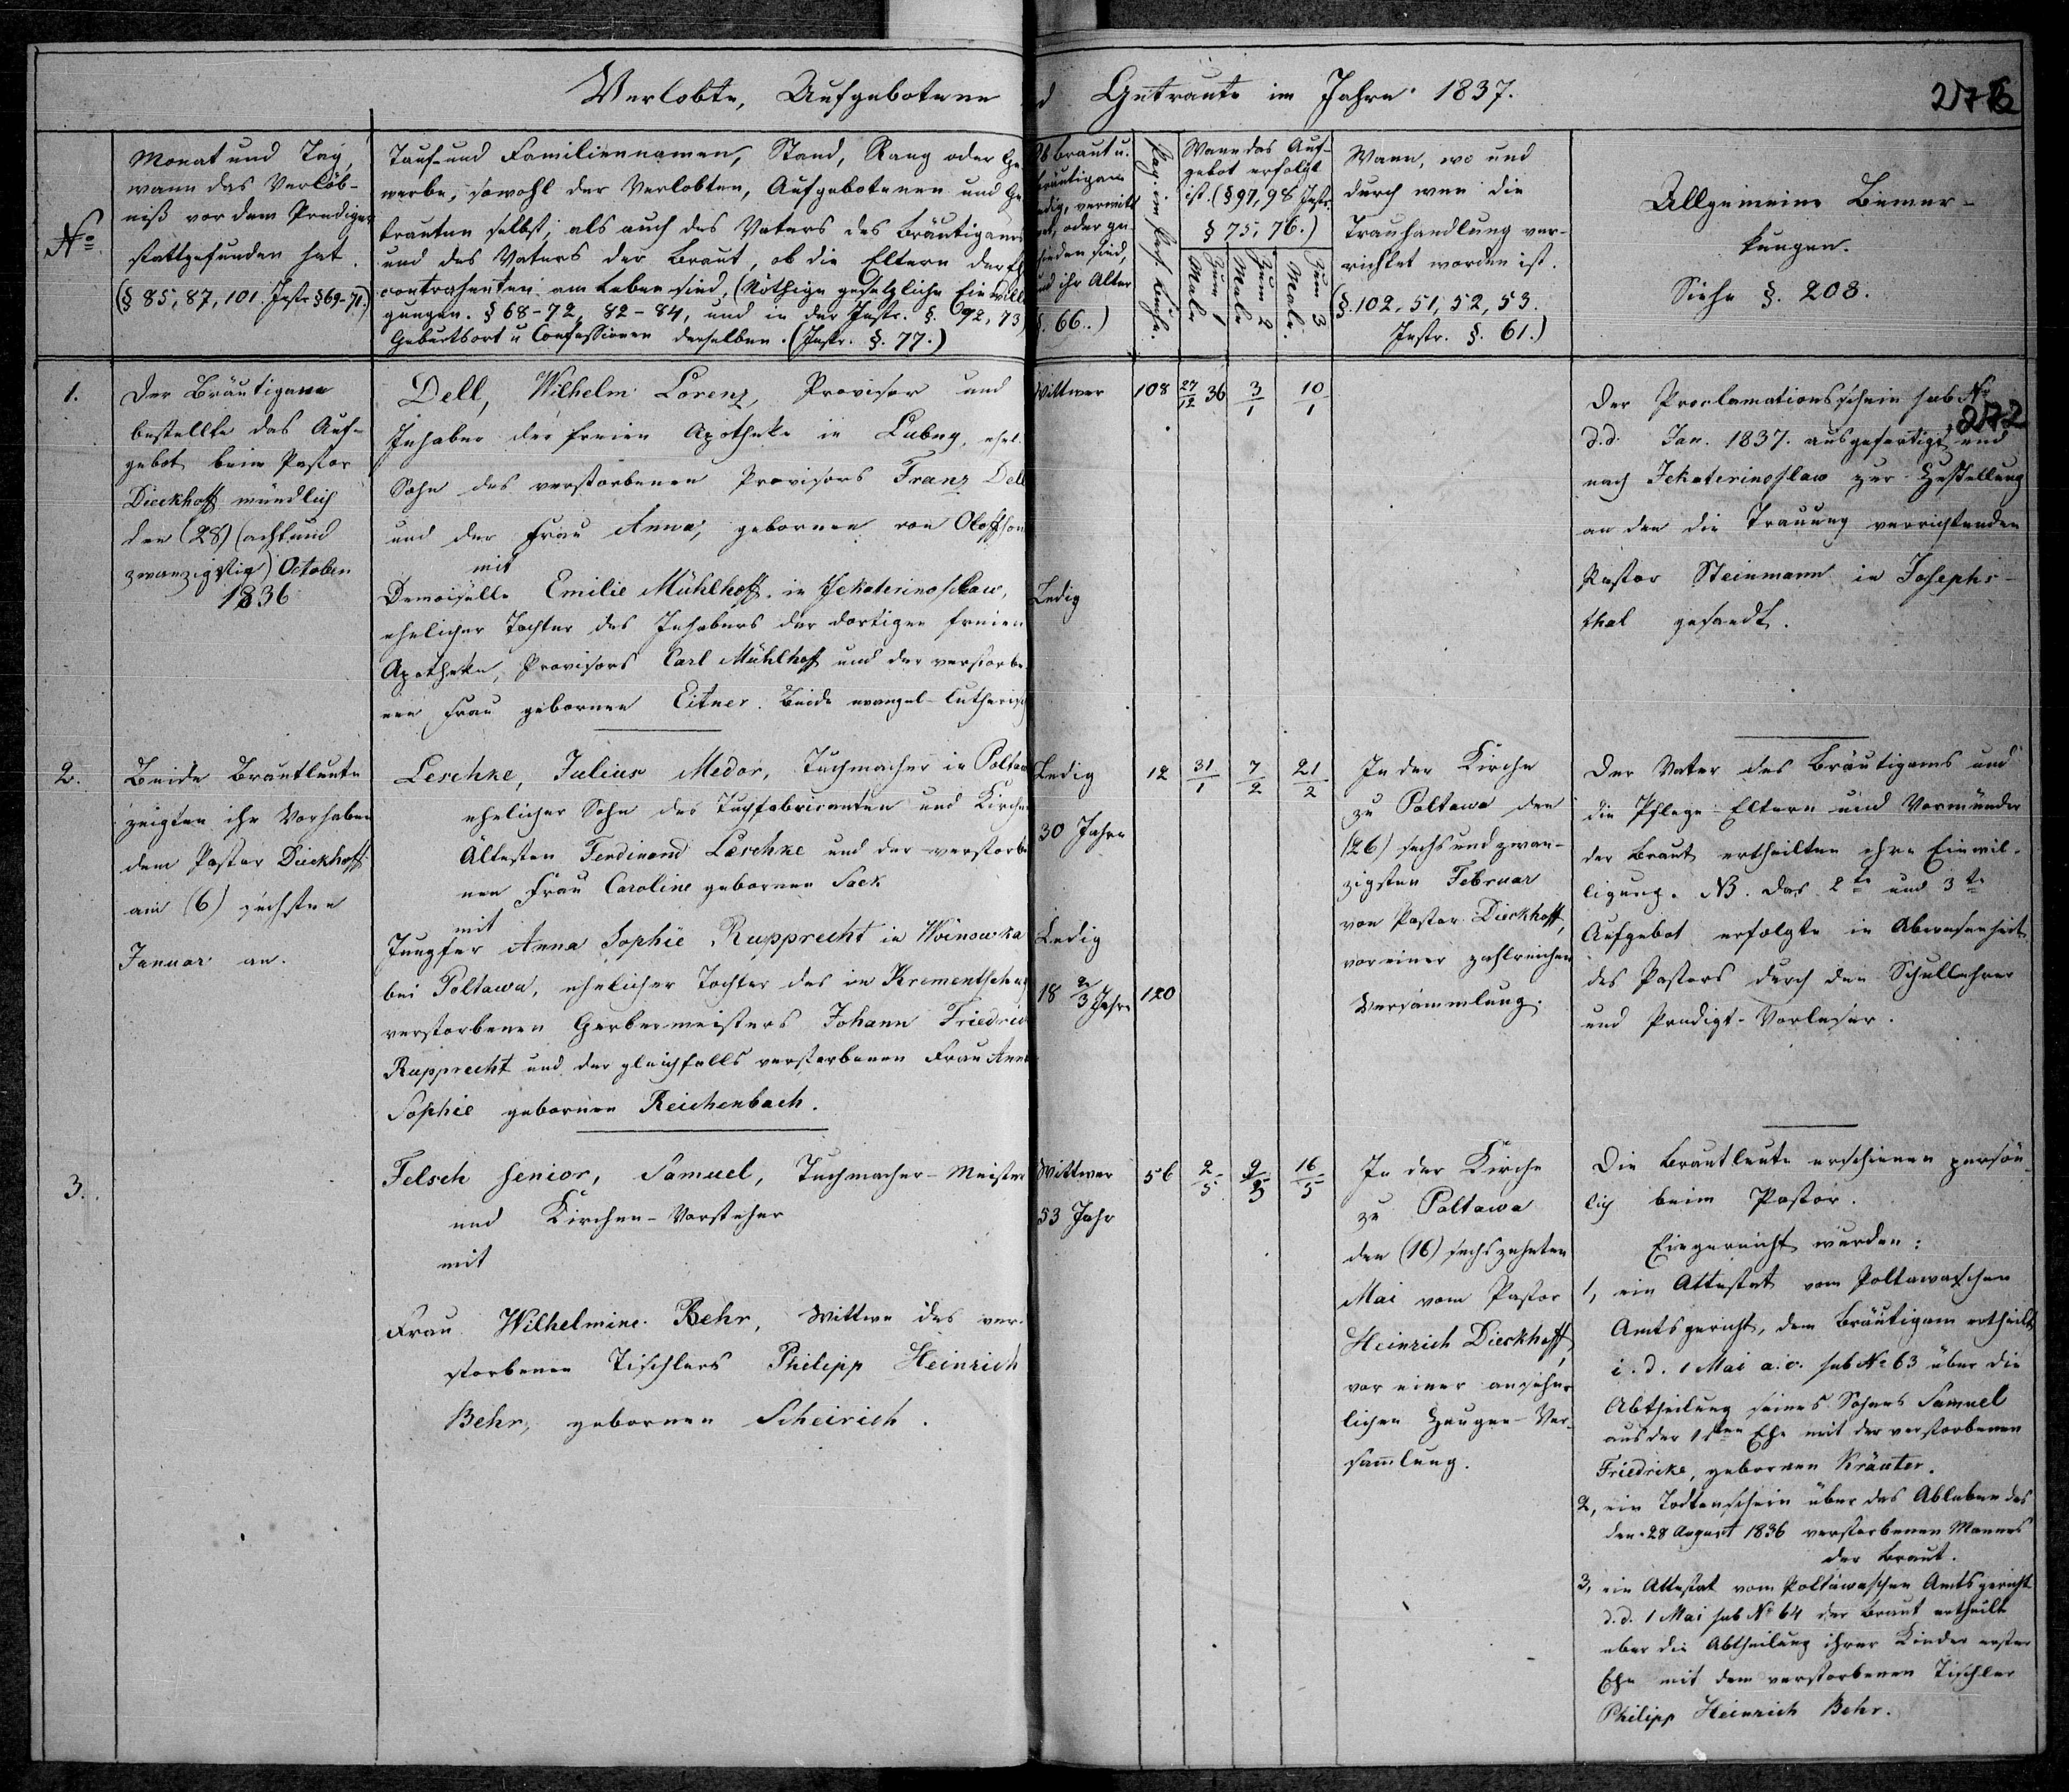 Verlobte, Aufgebotene und Getraute im Jahre 1837.
No
Monat und Tag,
wann das Verlöb-
niß vor dem Prediger
stattgefunden hat.
(§ 85, 87, 101. Instr. § 69-71.)
Tauf- und Familiennamen, Stand, Rang oder Ge-
werbe, sowohl der Verlobten, Aufgebotenen und Ge-
trauten selbst, als auch des Vaters des Bräutigams
und des Vaters der Braut, ob die Eltern der Eh
contrahenten am Leben sind, (Nöthige gesetzliche Einwilli
gungen. § 68-72, 82-84, und in der Instr. §. 92, 73)
Geburtsort u Confessionen derselben. (Instr. §. 77.)
Ob Braut u.
Bräutigam
ledig, verwitt
wet, oder ge-
schieden sind,
und ihr Alter
§. 66.)
Pag. im Pers. Buche.
Wann das Auf-
gebot erfolgt
ist. (§ 97, 98 Instr.
§ 75, 76.)
Zum 1 Male
Zum 2 Male
Zum 3 Male.
Wann, wo und
durch wen die
Trauhandlung ver-
richtet worden ist.
(§. 102, 51, 52, 53.
Instr. §. 61.)
Allgemeine Bemer-
kungen.
Siehe §. 208.
1.
Der Bräutigam
bestellte das Auf-
gebot beim Pastor
Dieckhoff mündlich
den (28) (achtund
zwanzigstig) October
1836
Dell, Wilhelm Lorenz, Provisor und
Inhaber der freien Apotheke in Lubny, ehel.
Sohn des verstorbenen Provisors Franz Dell
und der Frau Anna, gebornen von Oloffson
mit
Demoiselle Emilie Mühlhoff in Jekaterinoslaw,
ehelicher Tochter des Inhabers der dortigen freien
Apotheke, Provisors Carl Mühlhoff und der verstorbe-
nen Frau gebornen Eitner. Beide evangel-lutherisch
Wittwer
Ledig
108
27/12 36
3/1
10/1
Der Proclamationsschein sub No
272
d.d. Jan. 1837. ausgefertigt und
nach Jekaterinoslaw zur Zustellung
an den die Trauung verrichtenden
Pastor Steinmann in Josephs-
thal gesandt.
2.
Beide Brautleute
zeigten ihr Vorhaben
dem Pastor Dieckhoff
am (6) sechsten
Januar an.
Leschke, Julius Medor, Tuchmacher in Poltaw
ehelicher Sohn des Tuchfabricanten und Kirchen
Ältesten Ferdinand Leschke und der verstorbe
nen Frau Caroline gebornen Sack
mit
Jungfer Anna Sophie Rupprecht in Woinowka
bei Poltawa, ehelicher Tochter des in Krementschug
verstorbenen Gerbermeisters Johann Friedrich
Rupprecht und der gleichfalls verstorbenen Frau Anna
Sophie gebornen Reichenbach.
Ledig
30 Jahre
Ledig
18 2/3 Jahre
12
120
31/1
7/2
21/2
In der Kirche
zu Poltawa den
(26) sechs und zwan-
zigsten Februar
von Pastor Dieckhoff,
vor einer zahlreichen
Versammlung.
Der Vater des Bräutigams und
die Pflege-Eltern und Vormünder
der Braut ertheilten ihre Einwil-
ligung. NB. das 2te und 3te
Aufgebot erfolgte in Abwesenheit
des Pastors durch den Schullehrer
und Predigt-Vorleser.
3.
Felsch senior, Samuel, Tuchmacher-Meister
und Kirchen-Vorsteher
mit
Frau Wilhelmine Behr, Wittwe des ver-
storbenen Tischlers Philipp Heinrich
Behr, gebornen Scheirich.
Wittwer
53 Jahr
56
2/5
9/5
16/5
In der Kirche
zu Poltawa
den (16) sechszehnten
Mai vom Pastor
Heinrich Dieckhoff,
vor einer ansehn-
lichen Zeugen-Ver-
sammlung.
Die Brautleute erschienen persön-
lich beim Pastor.
Eingereicht wurden:
1, ein Attestat vom Poltawaschen
Amtsgericht, dem Bräutigam ertheilt
i. d. 1 Mai a. c. sub No 63 über die
Abtheilung seines Sohnes Samuel
aus der 1sten Ehe mit der verstorbenen
Friedrike, gebornen Kräuter.
2, ein Todtenschein über das Ableben des
den 28 August 1836 verstorbenen Mannes
der Braut.
3, ein Attestat vom Poltawaschen Amtsgericht
d. d. 1 Mai sub No 64 der Braut ertheilt
über die Abtheilung ihrer Kinder erster
Ehe mit dem verstorbenen Tischler
Philipp Heinrich Behr.